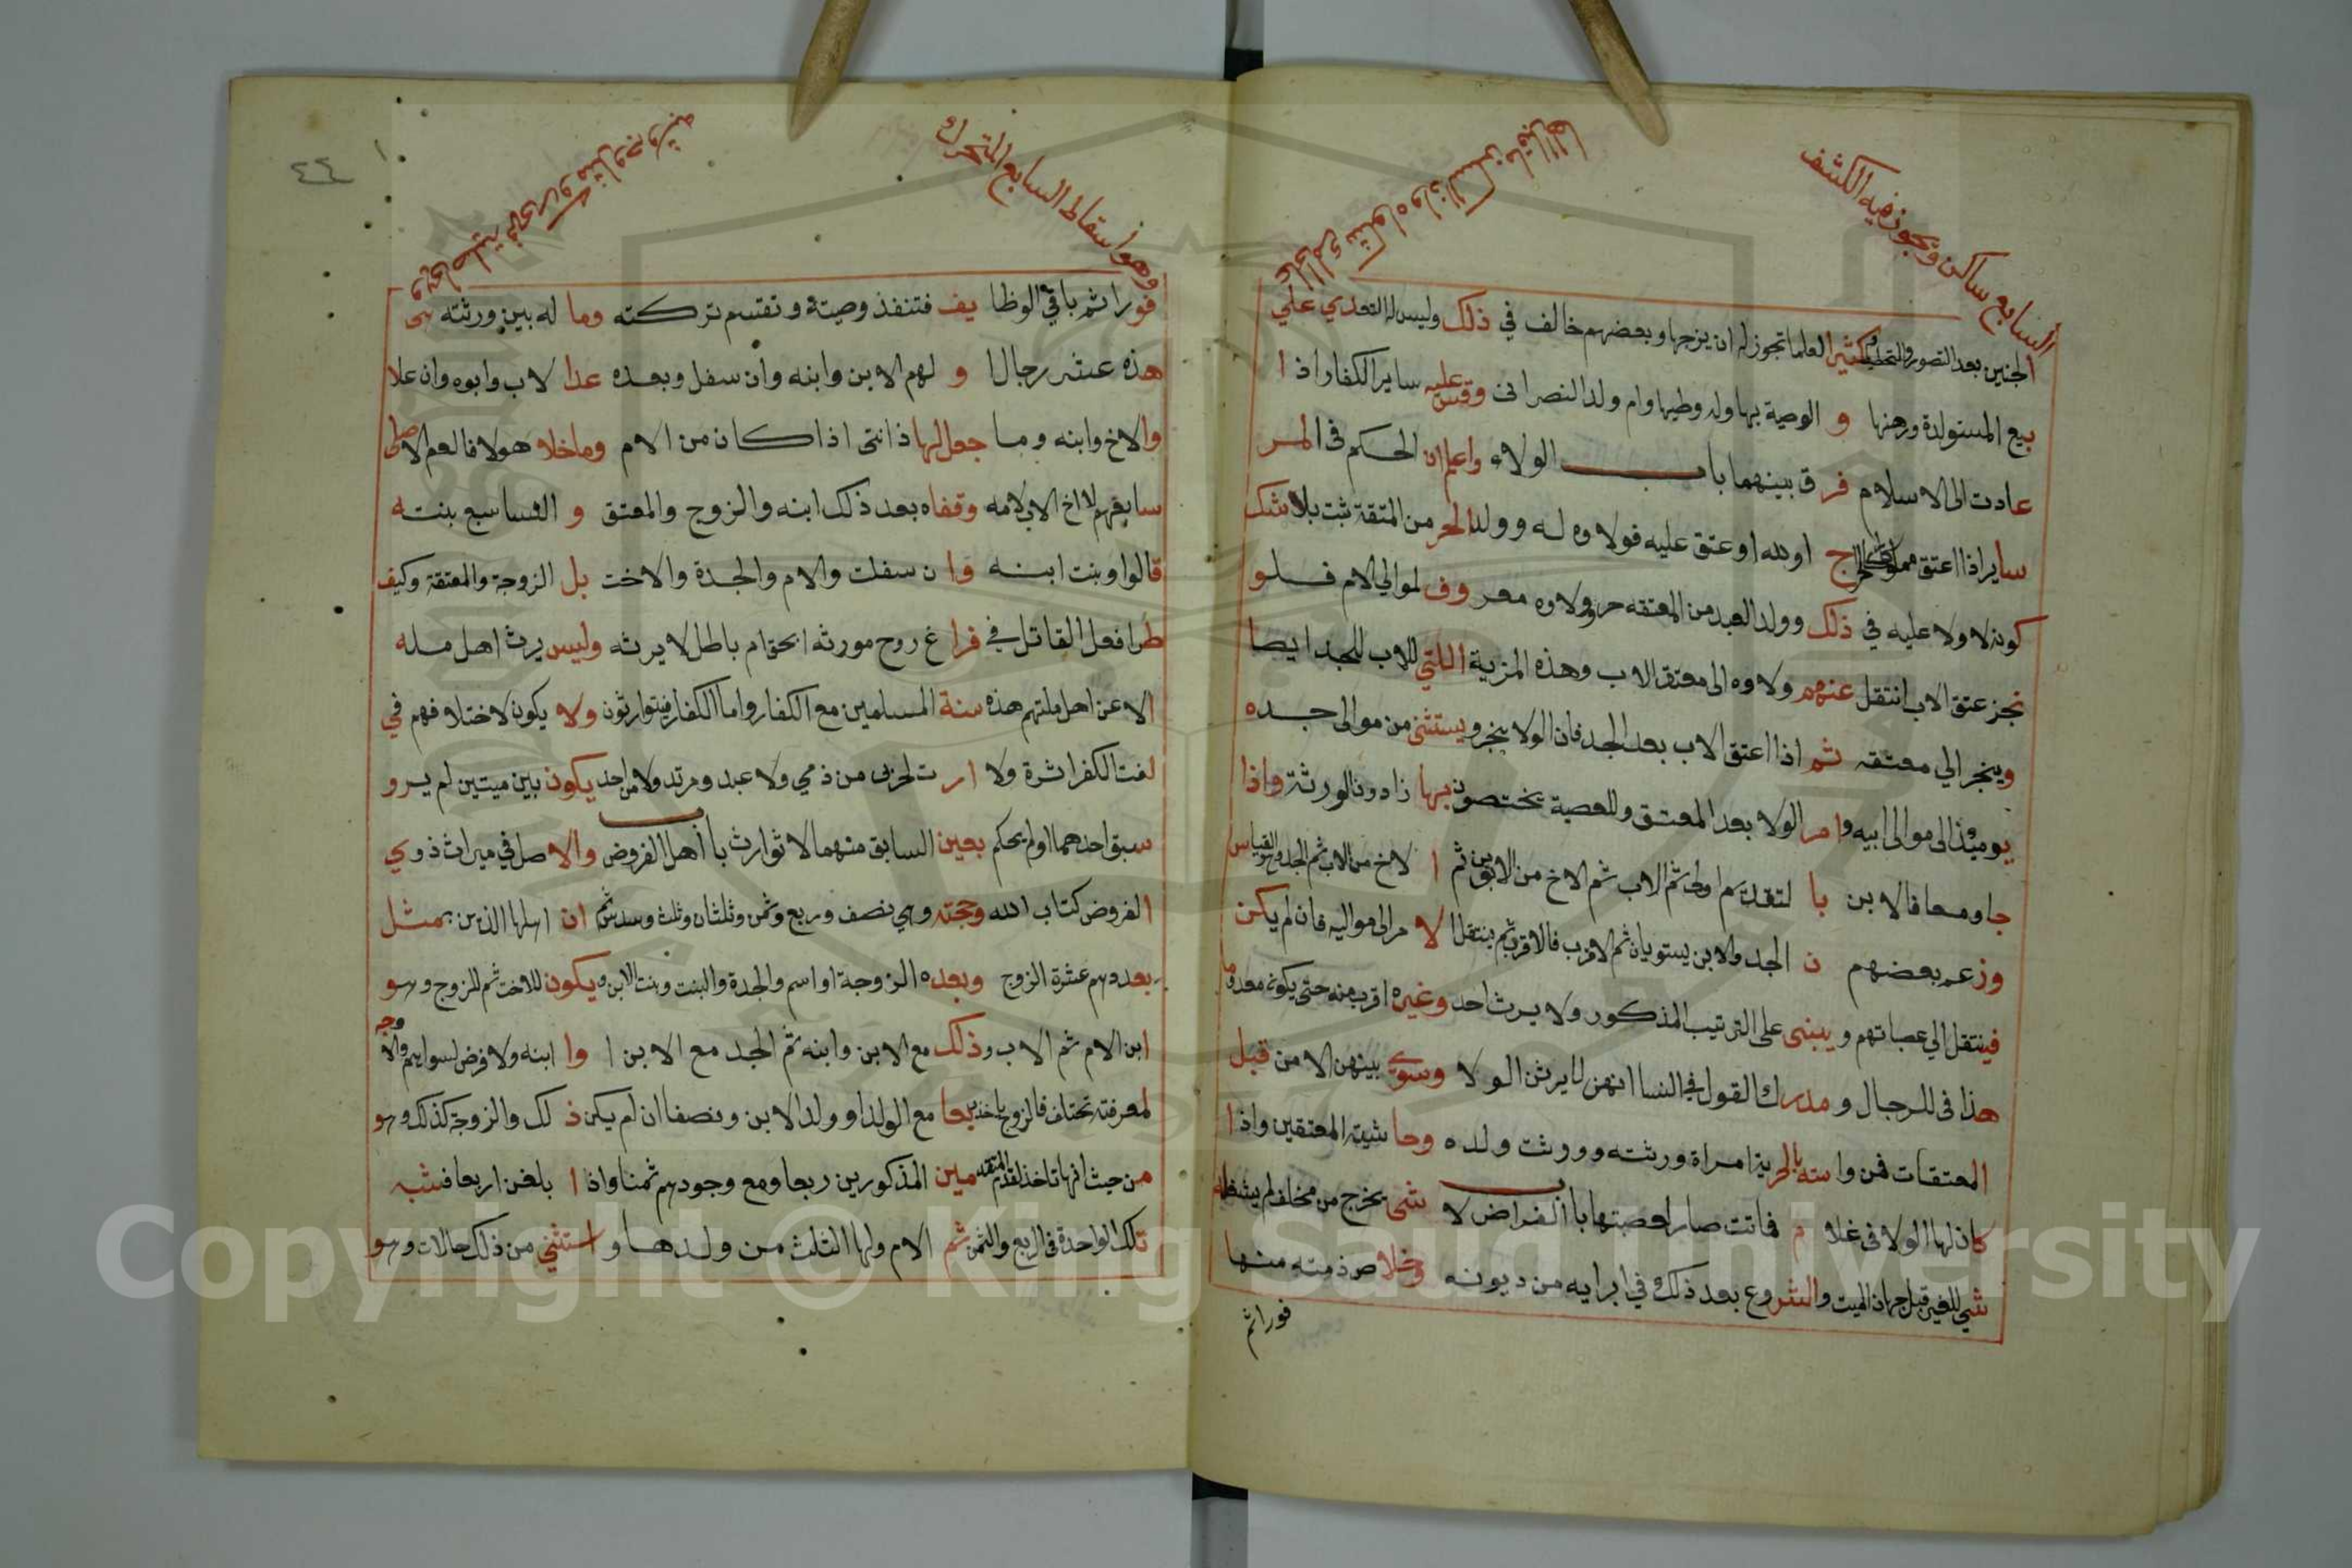 السابع ساكن ويجوز فيه الكشف
الجنين بعد التصور والتخليق وكثير العلما تجوز له ان يزوجها وبعضهم خالف في ذلك وليس له التعدي علي
بيع المستولدة ورهنها و الوصية بها وله وطيها وام ولد النصراني وقس عليه ساير الكفار اذا
عادت الى الاسلام فرق بينهما باب الولاء واعلم ان الحكم في المر
ساير اذا اعتق او لله او عتق عليه فولاوه له وولد الحر من المتقة ثبت بلا شك
كونه لا ولا عليه في ذلك وولد العبد من المعتقه حر وولاوه معروف لموالي الام فلو
نجز عتق الاب انتقل عنهم ولاوه الى معتق الاب وهذه المزية اللتي للاب للجد ايضا
وينجر الي معتقه ثم اذا اعتق الاب بعد الجد فان الولا ينجر ويستثنى من موالى جده
يوميذ الى موالى ابيه وامر الولا بعد المعتق وللعصبة يختصون بها زادون الورثة واذا
جاو معا فالابن با لتقديم اولى ثم الاب ثم الاخ من الابوين ثم ا لاخ من الاب ثم الجد وهو القياس
وزعم بعضهم ن الجد والابن يستويان ثم الاقرب فالاقرب ثم ينتقل الا مر الى مواليه فان لم يكن
فينتقل الي عصباتهم ويبنى على الترتيب المذكور ولا يرث احد وغيره اقرب منه حتى يكون معدوما
هذا في للرجال ومدرك القول في النسا انهن لا يرثن الولا وسوي بينهن الا من قبل
المعتقات فمن واسته بالحرية امراة ورثته وورثت ولده وحاشيته المعتقين واذا
كان لها الولا فى غلا م فماتت صار لعصبتها باب الفراض لا شى يخرج من مخلف لم يشغله
شي للغير قبل جهاز الميت والشروع بعد ذلك في ابرايه من ديونه وخلاص ذمته منها
فوراثم
وهو اسقاط السابع المتحرك
٤٤
فوراثم باقي الوظا يف فتنفذ وصيته وتقسم تركته وما له بين ورثته
هذه عشر رجالا و لهم الابن وابنه وان سفل وبعده عدا لاب وابوه وان علا
والاخ وابنه وما جعل لها ذا نثى اذا كان من الام وما خلا هولا فالعم الاصلى
سايغهم لا اخ الاب لامه وقفاه بعد ذلك ابنه والزوج والمعتق و النسا سبع بنته
قالوا وبنت ابنه وان سفلت والام والجدة والاخت بل الزوجة والمعتقة وكيف
طرا فعل القاتل في فراغ روح مورثه ابحق ام باطل لا يرثه وليس يرث اهل مله
الا عن اهل ملتهم هذه سنة المسلمين مع الكفار واما الكفار فيتوارثون ولا يكون لاختلافهم في
لغت الكفر اثرة ولا ارت لحزبى من ذمي ولا عبد ومرتد ولا من احد يكون بين ميتين لم يرو
سبق احدهما او لم يحكم بعين السابق منهما لا توارث باب اهل الفروض والاصل في ميراث ذوي
الفروض كتاب الله وحجته وهي نصف وربع وثمن وثلثان وثلث وسدس ثم ان اهلها الذين بمثل
بعددهم عشرة الزوج وبعده الزوجة او اسم والجدة والبنت وبنت الابن ويكون للاخت ثم للزوج وهو
ابن الام ثم الاب وذلك مع الابن وابنه ثم الجد مع الابن ا وا ابنه ولا فرض لسواهم والاوجه
لمعرفته تختلف فالزوج ياخذ ربعا مع الولد او ولد الابن ونصفا ان لم يكن ذ لك والزوجة كذلك وهو
من حيث انها تاخذ لعدم المتقدمين المذكورين ربعا ومع وجودهم ثمنا واذا بلغن اربعا فشبه
تلك الواحدة فى الربع والثمن ثم الام ولها الثلث من ولدها واستثني من ذلك حالات وهو
Copyright © King Saud University